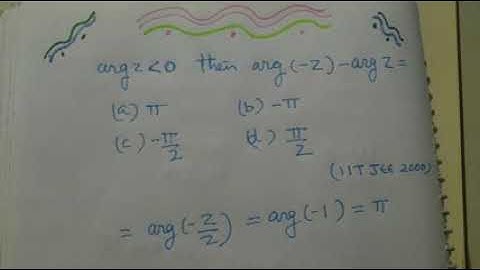 arg z < 0 then arg(-z) - arg z =
(a) π (b) -π
(c) -π/2 (d) π/2
(IIT JEE 2000)
= arg(-z/z) = arg(-1) = π